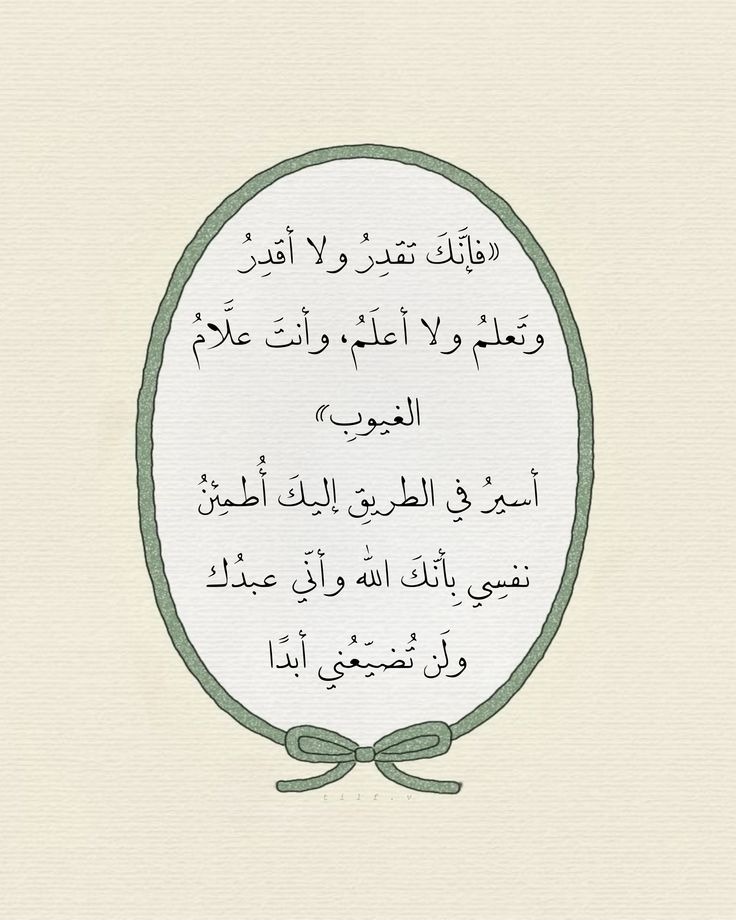 «فإنَّكَ تقدِرُ ولا أقدِرُ
وتَعلمُ ولا أعلَمُ، وأنتَ علَّامُ
الغيوبِ»
أسيرُ في الطريقِ إليكَ أُطمِئنُ
نفسِي بِأنّكَ الله وأنّي عبدُك
ولَن تُضيّعُني أبدًا
t i l f . v